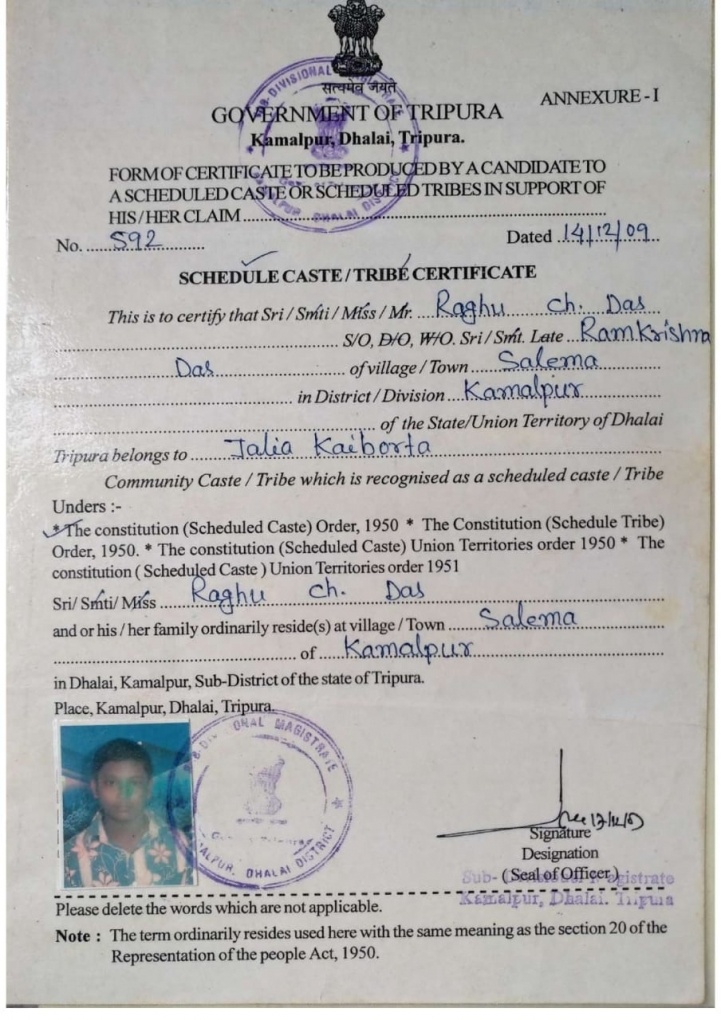 सत्यमेव जयते
ANNEXURE - I
GOVERNMENT OF TRIPURA
Kamalpur, Dhalai, Tripura.
FORM OF CERTIFICATE TO BE PRODUCED BY A CANDIDATE TO
A SCHEDULED CASTE OR SCHEDULED TRIBES IN SUPPORT OF
HIS / HER CLAIM
No. 592 Dated 14/12/09
SCHEDULE CASTE / TRIBE CERTIFICATE
This is to certify that Sri / Smti / Miss / Mr. Raghu Ch. Das
S/O, D/O, W/O. Sri / Smt. Late Ramkrishna
Das of village / Town Salema
in District / Division Kamalpur
of the State/Union Territory of Dhalai
Tripura belongs to Jalia Kaiborta
Community Caste / Tribe which is recognised as a scheduled caste / Tribe
Unders :-
* The constitution (Scheduled Caste) Order, 1950 * The Constitution (Schedule Tribe)
Order, 1950. * The constitution (Scheduled Caste) Union Territories order 1950 * The
constitution ( Scheduled Caste ) Union Territories order 1951
Sri/ Smti/ Miss Raghu Ch. Das
and or his / her family ordinarily reside(s) at village / Town Salema
of Kamalpur
in Dhalai, Kamalpur, Sub-District of the state of Tripura.
Place, Kamalpur, Dhalai, Tripura.
MAGISTRATE
DHALAI DISTRICT
Signature
Designation
(Seal of Officer)
Kamalpur, Dhalai. Tripura
Please delete the words which are not applicable.
Note : The term ordinarily resides used here with the same meaning as the section 20 of the
Representation of the people Act, 1950.